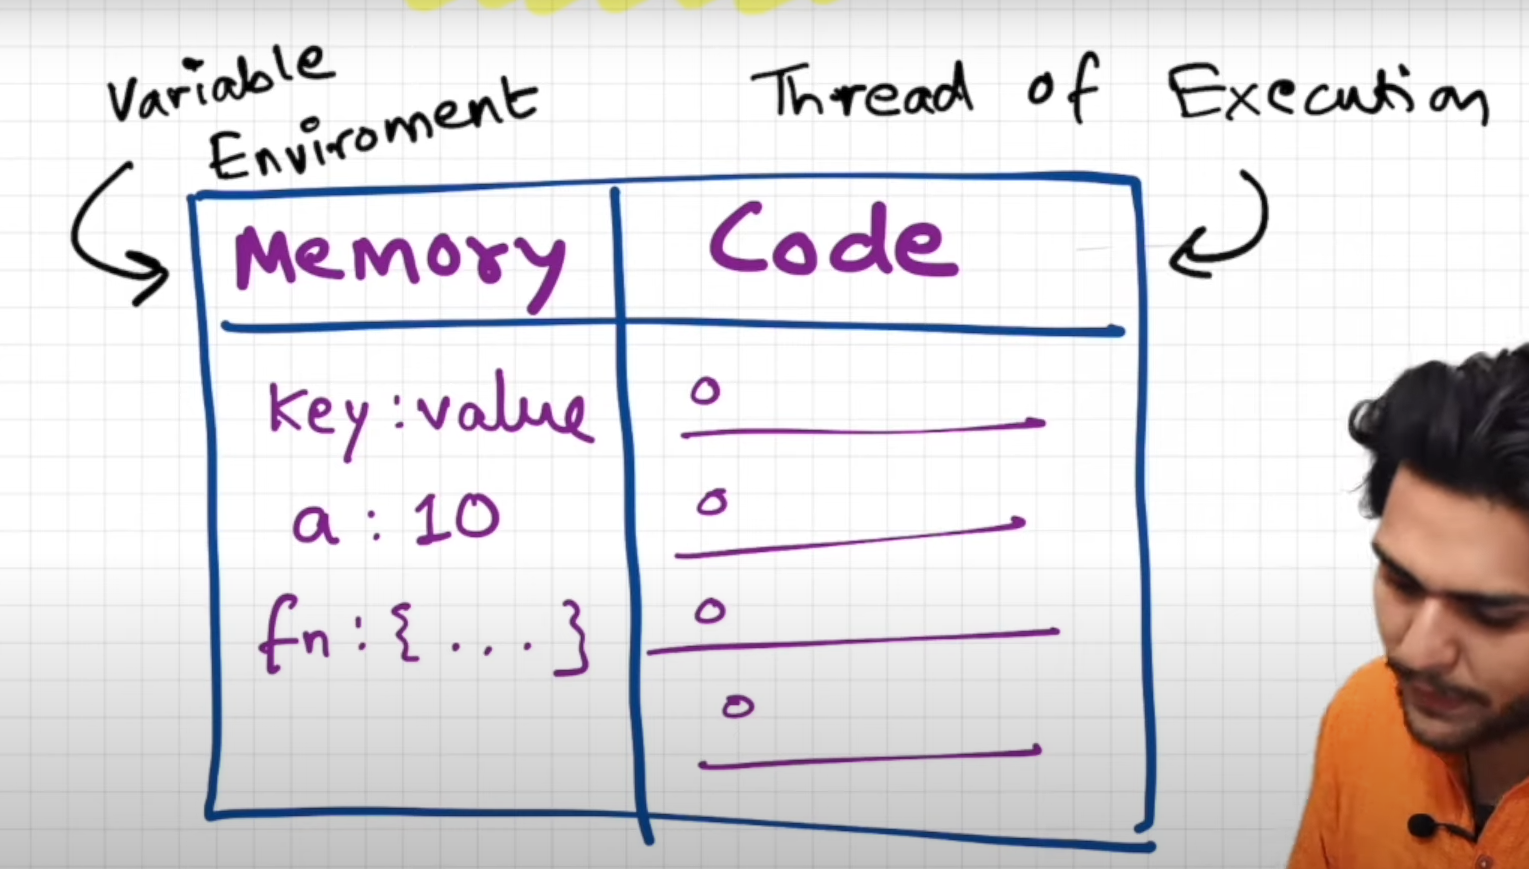 Variable
Enviroment
Thread of Execution
Memory
Code
key : value
a : 10
fn : { ... }